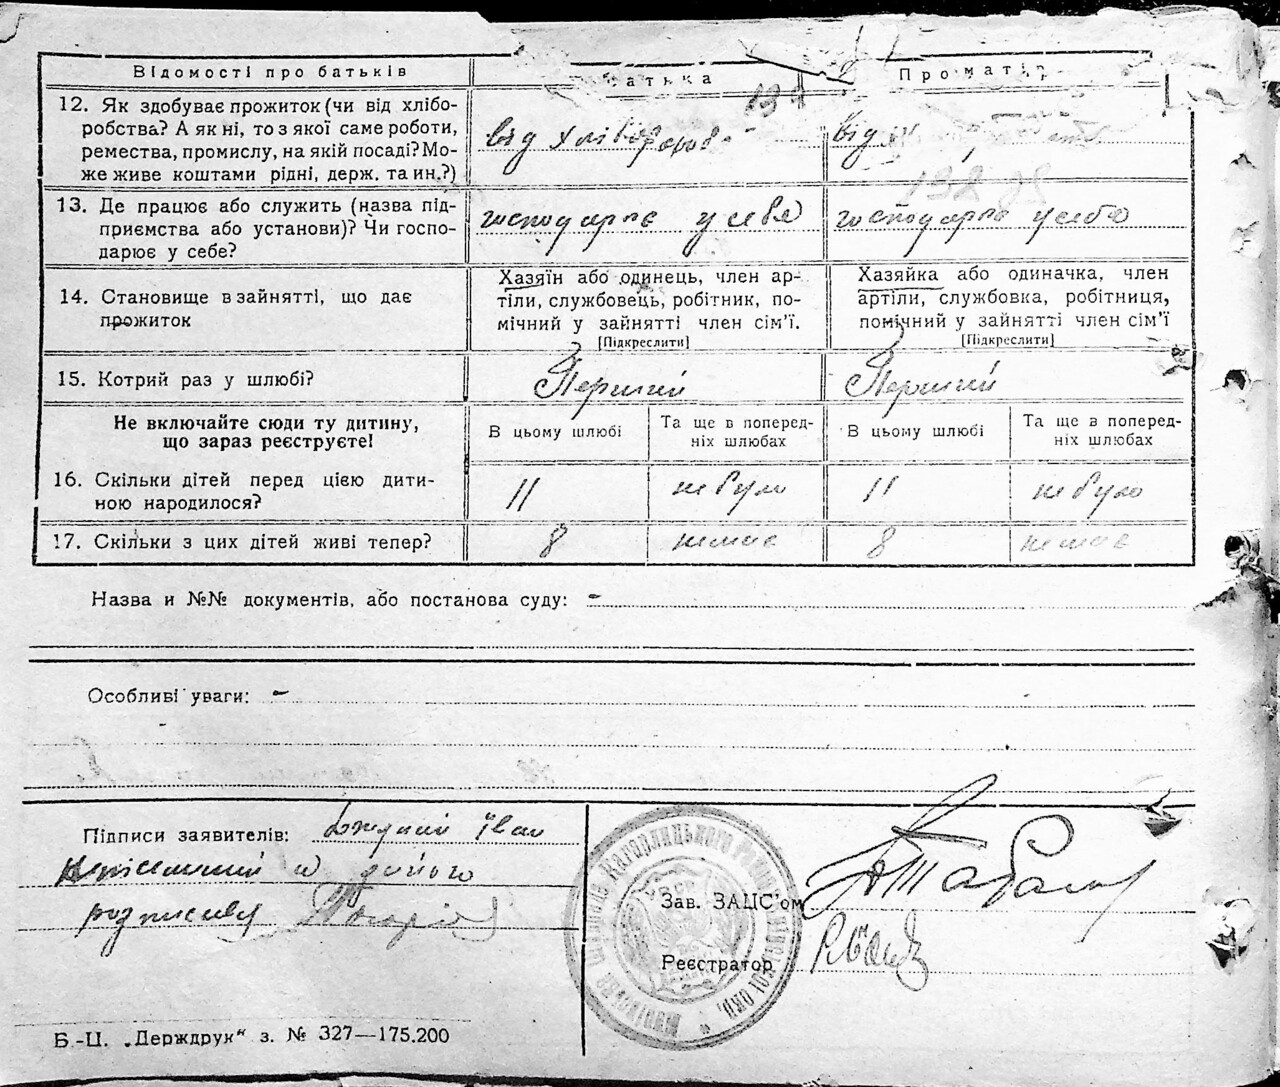 Відомості про батьків
батька
Про матір
131
12. Як здобуває прожиток (чи від хлібо-
робства? А як ні, то з якої саме роботи,
ремества, промислу, на якій посаді? Мо-
же живе коштами рідні, держ. та ин.?)
від хліборобс
від
132
13. Де працює або служить (назва під-
приємства або установи)? Чи госпо-
дарює у себе?
господарює у себе
господарює у себе
14. Становище в зайнятті, що дає
прожиток
Хазяїн або одинець, член ар-
тіли, службовець, робітник, по-
мічний у зайнятті член сім'ї.
[Підкреслити]
Хазяйка або одиначка, член
артіли, службовка, робітниця,
помічний у зайнятті член сім'ї
[Підкреслити]
15. Котрий раз у шлюбі?
Перший
Перший
Не включайте сюди ту дитину,
що зараз реєструєте!
В цьому шлюбі
Та ще в поперед-
ніх шлюбах
В цьому шлюбі
Та ще в поперед-
ніх шлюбах
16. Скільки дітей перед цією дити-
ною народилося?
11
не було
11
не було
17. Скільки з цих дітей живі тепер?
8
немає
8
немає
Назва и №№ документів, або постанова суду: –
Особливі уваги: –
Підписи заявителів: Іван
неписьменний а за нього
росписався
Кагарлицького
УСРР
Зав. ЗАЦС'ом
Реєстратор
Б.-Ц. „Держдрук“ з. № 327—175.200